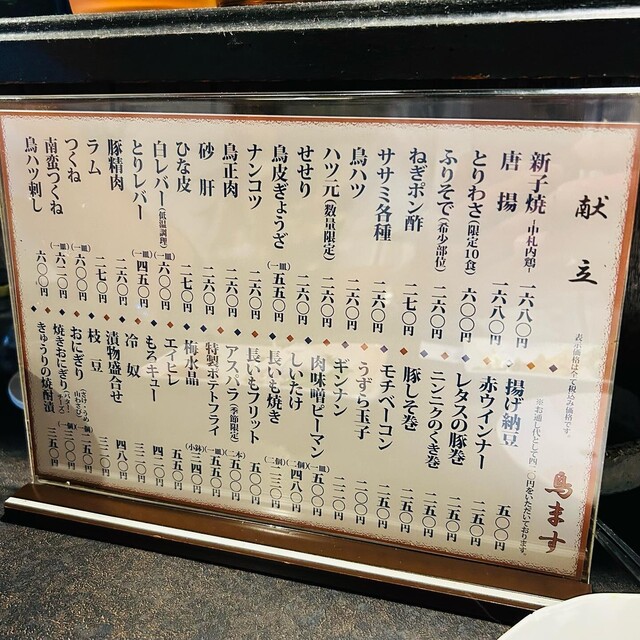 献立
表示価格はすべて税込み価格です。
新子焼 -中札内鶏- 一六八〇円
唐揚 一六八〇円
とりわさ(限定10食) 六〇〇円
ふりそで(希少部位) 二六〇円
ねぎポン酢 二七〇円
ササミ各種 二六〇円
鳥ハツ 二六〇円
ハツ元(数量限定) 二六〇円
せせり 二六〇円
鳥皮ぎょうざ (一皿)五五〇円
ナンコツ 二六〇円
鳥正肉 二六〇円
砂肝 二六〇円
ひな皮 二七〇円
白レバー(低温調理) (一皿)六〇〇円
とりレバー (一皿)四五〇円
豚精肉 二六〇円
ラム 二七〇円
つくね (一皿)六〇〇円
南蛮つくね (一皿)六二〇円
鳥ハツ刺し 六〇〇円
※お通し代として四二〇円をいただいております。
揚げ納豆 五〇〇円
赤ウインナー 二五〇円
レタスの豚巻 二五〇円
ニンニクのくき巻 二五〇円
豚しそ巻 二五〇円
モチベーコン 二五〇円
うずら玉子 二二〇円
ギンナン 二二〇円
肉味噌ピーマン (一皿)五〇〇円
しいたけ (二個)四八〇円
長いも焼き (二個)三五〇円
長いもフリット 五〇〇円
アスパラ(季節限定) (二本)五〇〇円
特製ポテトフライ (一皿)五五〇円
梅水晶 (小鉢)四五〇円
エイヒレ 五五〇円
もろキュー 四二〇円
冷奴 三二〇円
漬物盛合せ 四八〇円
枝豆 三二〇円
おにぎり(さけ・うめ・山わさび) (一個)二五〇円
焼きおにぎり(バター・チーズ) (一個)三〇〇円
きゅうりの焼酎漬 三五〇円
鳥ます